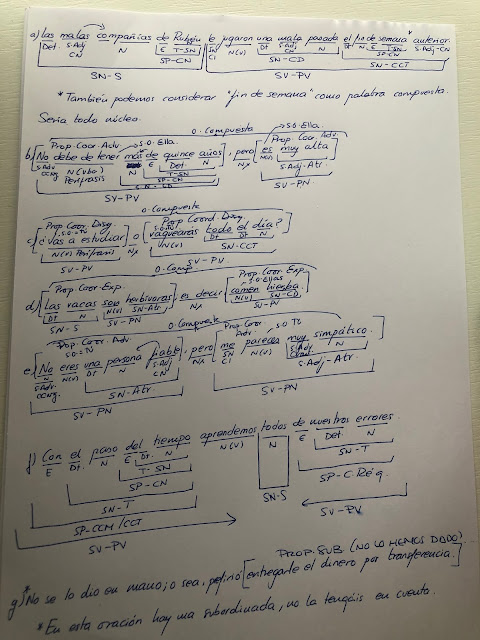 a) Las malas compañías de Rubén le jugaron una mala pasada el fin de semana* anterior.
Det. S-Adj CN N E T-SN SN CI N(v) Dt S-Adj CN N Dt N E T-SN S-Adj-CN
SP-CN SN-CD SP-CN
SN-CCT
SN-S SV-PV
* También podemos considerar "fin de semana" como palabra compuesta.
Sería todo núcleo.
O. Compuesta
Prop. Coor. Adv. S.O. Ella. Prop. Coor. Adv. S.O. Ella.
b) [No debe de tener más de quince años], pero [es muy alta]
N(vbo.) Perífrasis N E Det. N Nx N(v)
T-SN S-Adj-Atr.
SP-CN SV-PN
SN-CD
SV-PV
O. Compuesta
Prop. Coor. Disy. Prop. Coord. Disy.
c) [¿Vas a estudiar] o [vaguearás todo el día?]
N(v) Perífrasis Nx N(v) Dt Dt N
SV-PV SN-CCT
SV-PV
O. Comp.
Prop. Coor. Exp. Prop. Coor. Exp. S.O. Ellas
d) [Las vacas son herbívoras], es decir, [comen hierba.]
Dt N N(v) SN-Atr. Nx N(v) SN-CD
SN-S SV-PN SV-PV
O. Compuesta
Prop. Coor. Adv. Prop. Coor. Adv. S.O. Tú
e) [No eres una persona fiable], pero [me pareces muy simpático.]
N(v) Dt N S-Adj CN Nx SN CI N(v) N
SN-Atr. S-Adj-Atr.
SV-PN SV-PN
f) Con el paso del tiempo aprendemos todos de nuestros errores.
E Dt. N E Dt. N N(v) N E Det N
T-SN SN-T
SP-CN SN-S SP-C.Rég.
SN-T SV-PV
SP-CCM/CCT
SV-PV
PROP. SUB. (NO LO HEMOS DADO)
g)* No se lo dio en mano; o sea, prefirió [entregarle el dinero por transferencia.]
* En esta oración hay una subordinada, no la tengáis en cuenta.